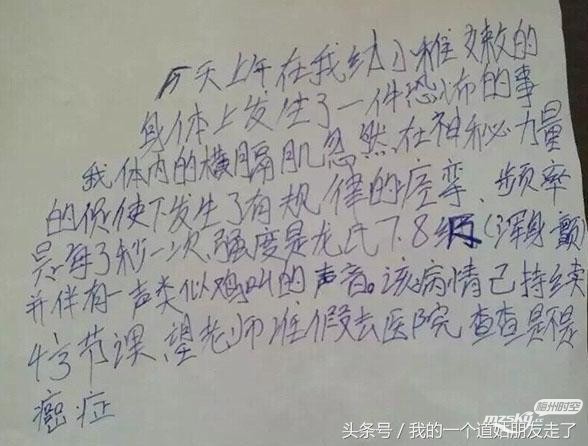 天上午在我幼小稚嫩的
身体上发生了一件恐怖的事
我体内的横膈肌忽然在神秘力量
的促使下发生了有规律的痉挛、频率
是每3秒一次、强度是龙氏7.8级(浑身颤)
并伴有一声类似鸡叫的声音。该病情已持续
4节课、望老师准假去医院查查是不是
癌症
梅州时空
mzsky.cc
头条号 / 我的一个道姑朋友走了